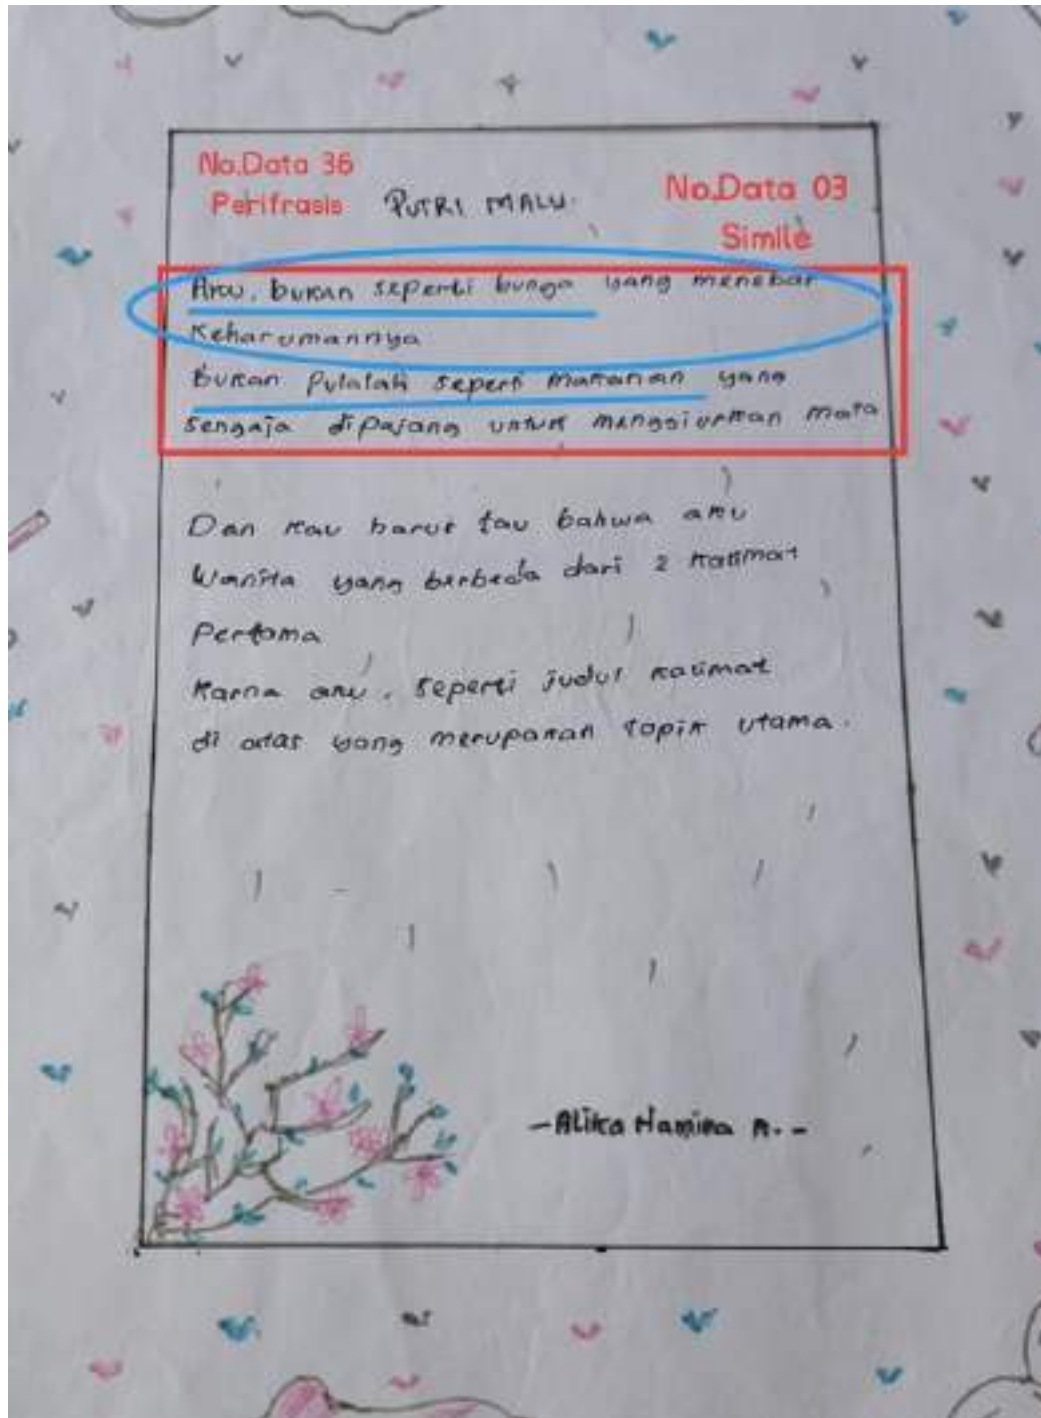 No.Data 36
Perifrasis
PUTRI MALU.
No.Data 03
Simile
Aku, bukan seperti bunga yang menebar
Keharumannya
Bukan Pulalah seperti makanan yang
sengaja dipajang untuk menggiurkan mata
Dan kau harus tau bahwa aku
Wanita yang berbeda dari 2 kalimat
Pertama
Karna aku, seperti judul kalimat
di atas yang merupakan topik utama.
-Alika Hamira A.-